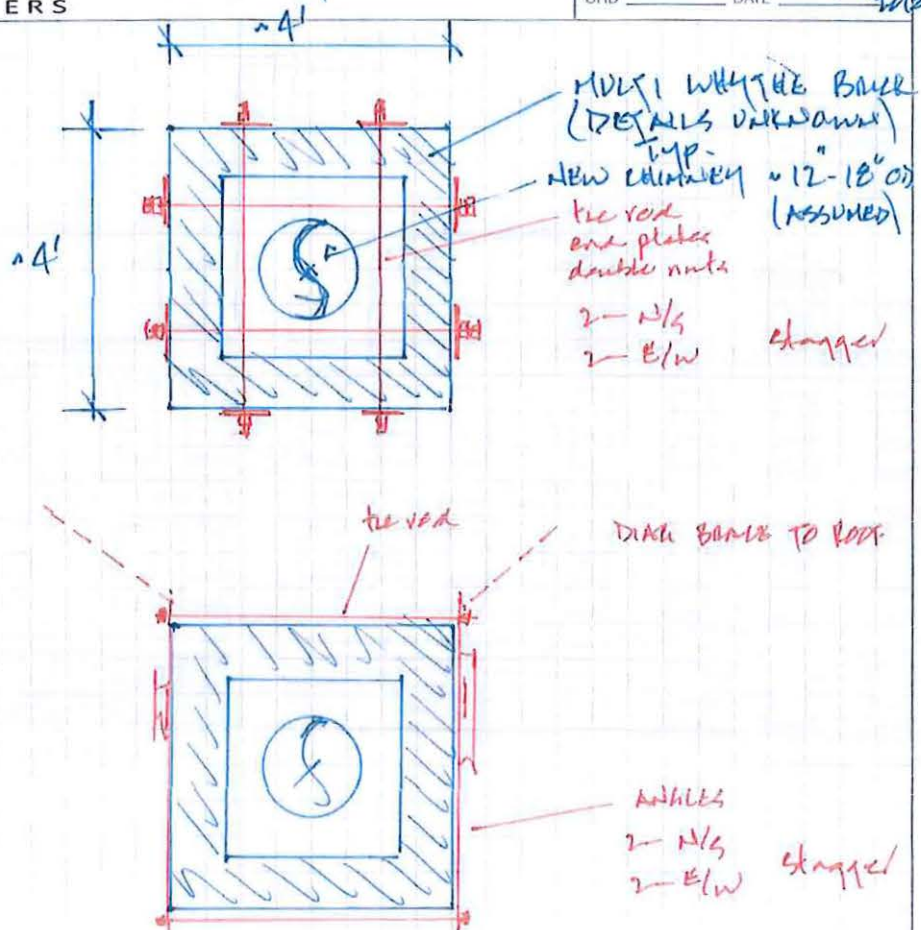 ERS
DATE
~4'
MULTI WHYTHE BRICK
(DETAILS UNKNOWN)
TYP.
NEW CHIMNEY ~12"-18" OD
(ASSUMED)
~4'
tie rod
end plates
double nuts
2 — N/S
2 — E/W stagger
tie rod
DIAG BRACE TO ROOF
ANGLES
2 — N/S
2 — E/W stagger